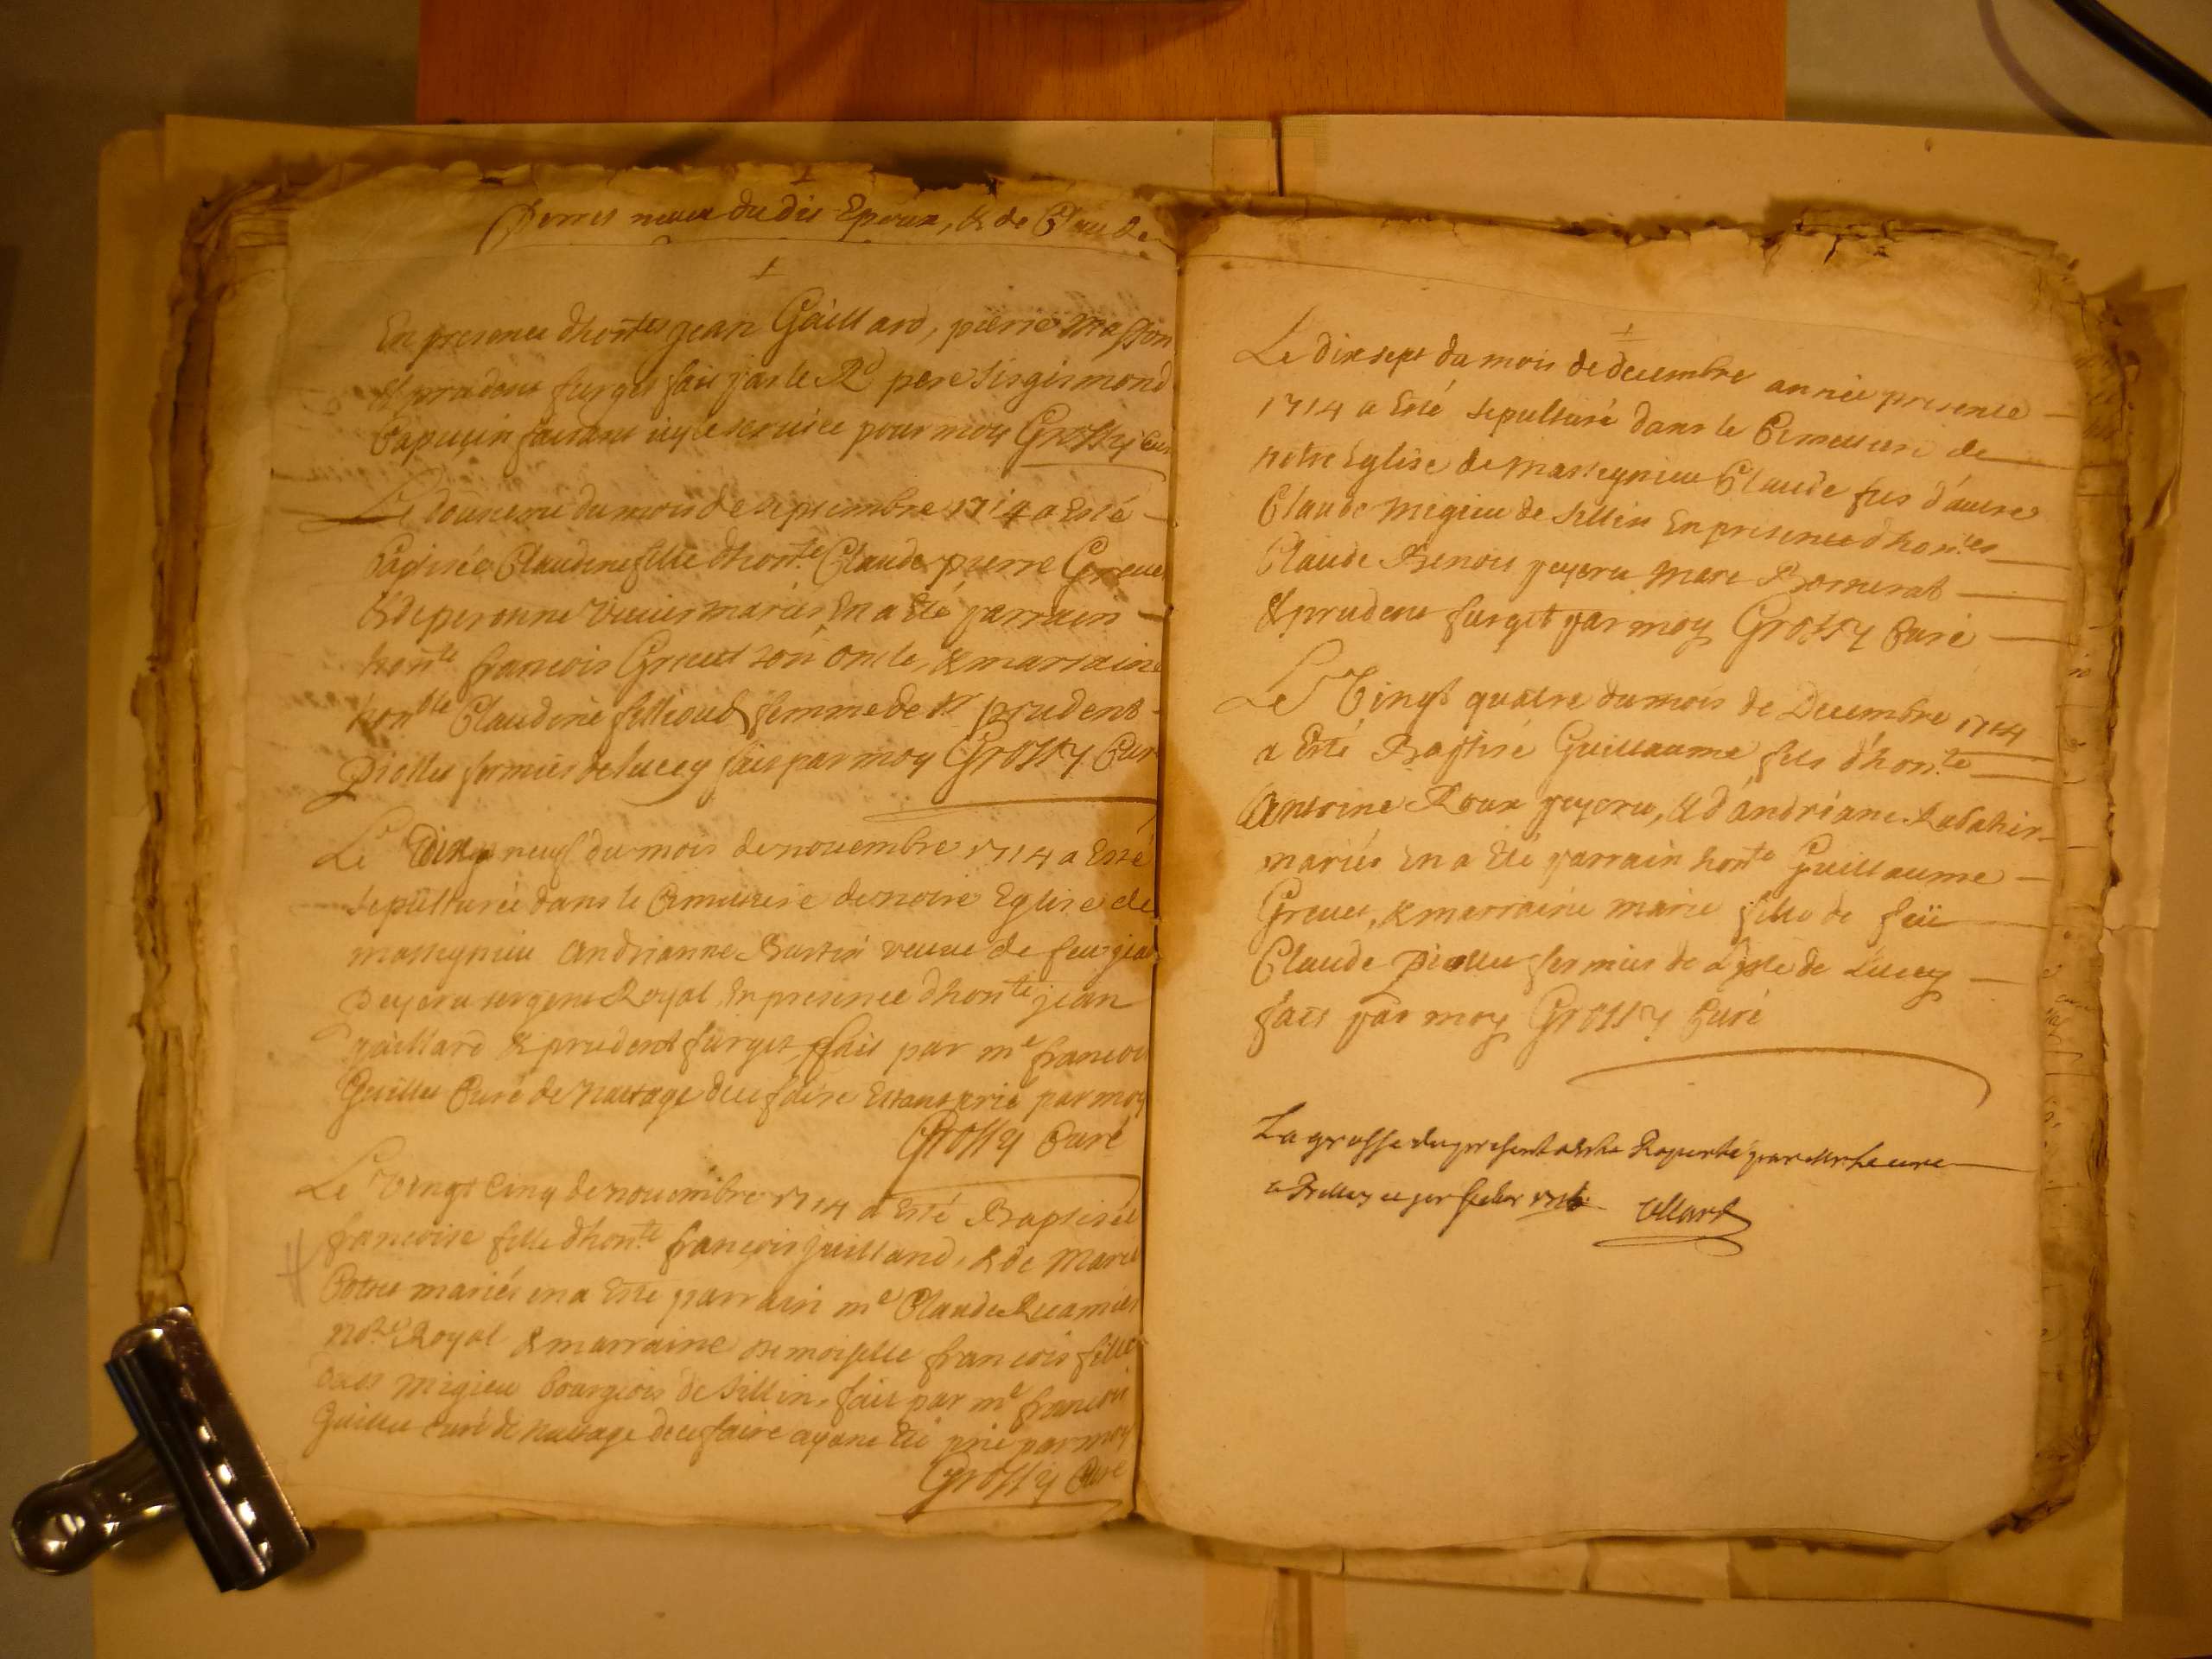 Perret neveu du dit Epoux, & de Claude
En presence dhontes jean Gaillard, pierre Masson
& prudent furget fait par le Rd pere Sisgismond
Capucin faisant icy le service pour moy Grossy Cur
Le douzieme du mois de septembre 1714 a Esté
Baptisée Claudine fille dhonte Claude pierre Greuet
& de peronne mariés En a Eté parrain
honte francois Greuet son oncle, & marraine
honble Claudine fillioud femme de Sr prudent
Diollet fermier de lucey fait par moy Grossy Cur
Le Dix neuf du mois de novembre 1714 a Esté
sepulturée dans le Cimetiere de notre Eglise de
massignieu Andrianne Burtin veuve de feu jean
peycru sergent Royal En presence dhonte jean
gaillard & prudent furget, fait par me francois
Guillet Curé de Nattage de ce faire Estant prié par moy
Grossy Curé
Le Vingt Cinq de novembre 1714 a Esté Baptisée
francoise fille dhonte francois juilland, & de Marie
Cottet mariés en a Esté parrain me Claude Recamier
Nore Royal & marraine demoiselle francois fille
migieu bourgeois de Sillin, fait par me francois
Guillet curé de Nattage de ce faire ayant Eté prié par moy
Grossy Curé
Le dix sept du mois de decembre année presente
1714 a Esté sepulturé dans le Cimetiere de
notre Eglise de Massignieu Claude fils d'autre
Claude Migieu de Sillin En presence dhontes
Claude Benoit peycru Marc Bornerat
& prudent furget par moy Grossy Curé
Le Vingt quatre du mois de Decembre 1714
a Esté Baptisé Guillaume fils d'honte
Antoine Roux peycru, & d'andriane Rabatier
mariés En a Eté parrain honte Guillaume
Greuet, & marraine marie fille de feü
Claude Diollet fermier de Lisle de Lucey
fait par moy Grossy Curé
La grosse du present a esté Raporté par Mr le curé
a Belley ce per febvr